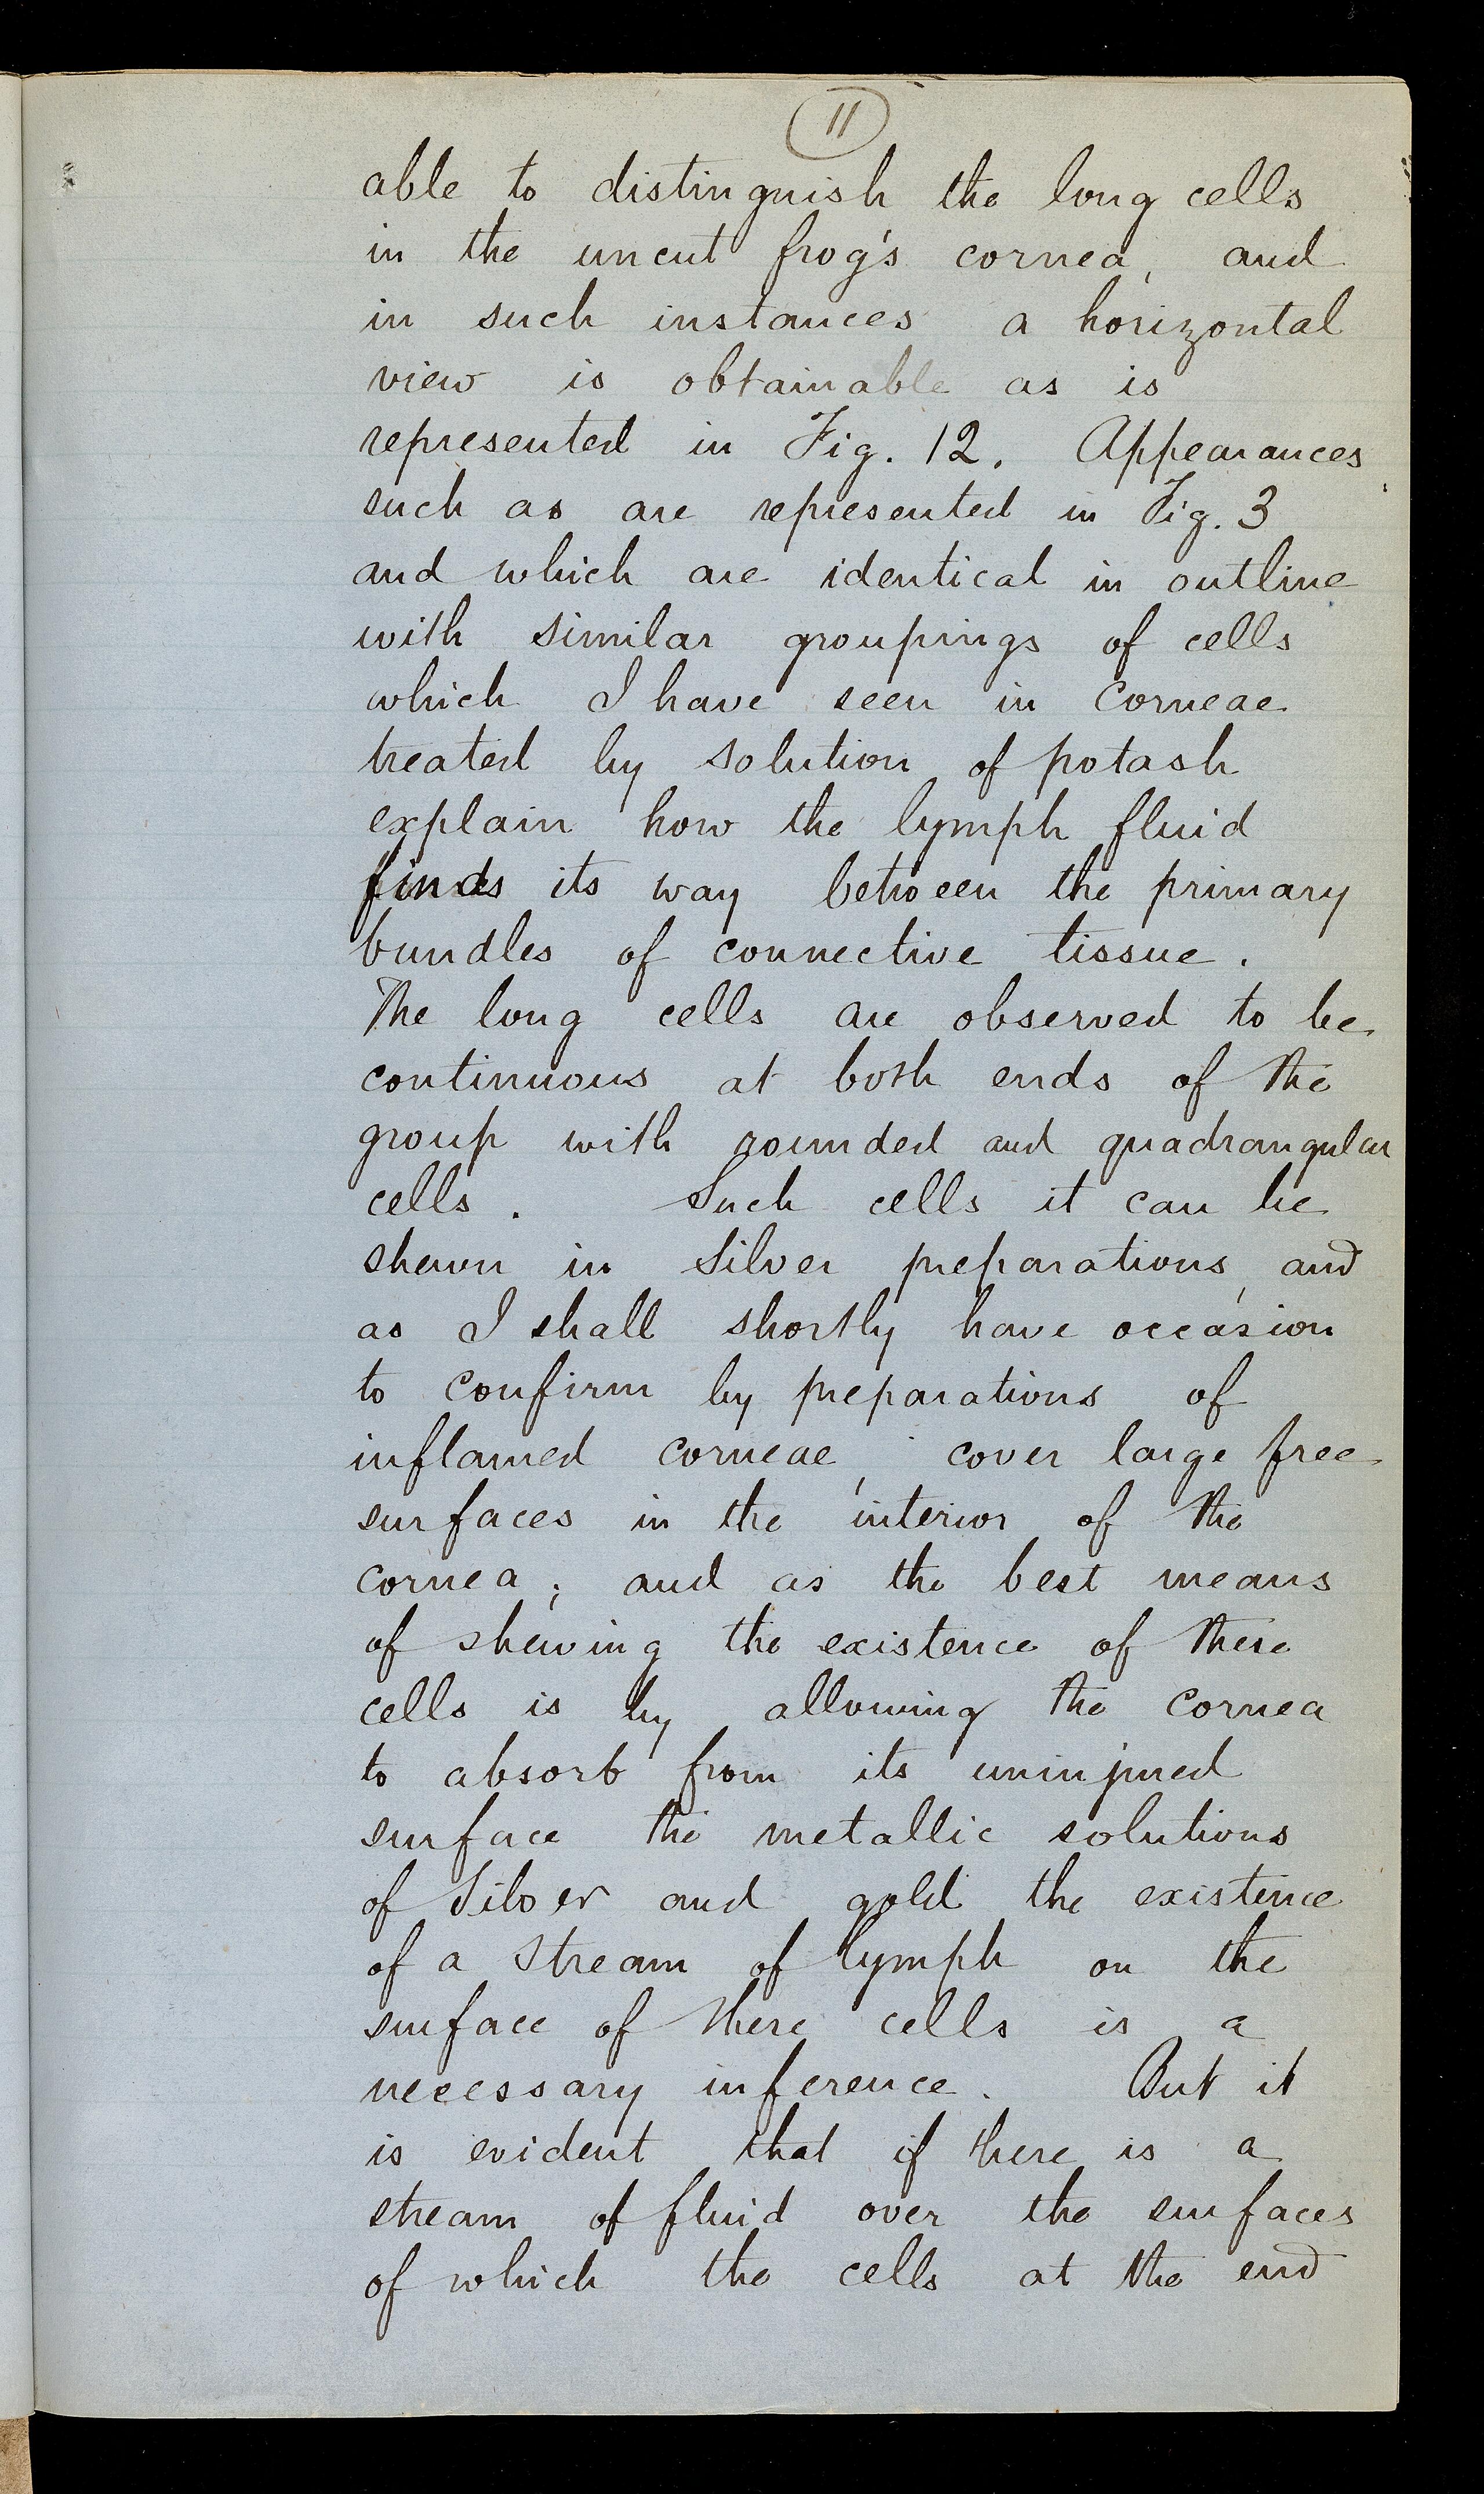 11
able to distinguish the long cells
in the uncut frog's cornea, and
in such instances a horizontal
view is obtainable as is
represented in Fig. 12. Appearances
such as are represented in Fig. 3
and which are identical in outline
with similar groupings of cells
which I have seen in Corneae
treated by solution of potash
explain how the lymph fluid
finds its way between the primary
bundles of connective tissue.
The long cells are observed to be
continuous at both ends of the
group with rounded and quadrangular
cells. Such cells it can be
shewn in Silver preparations, and
as I shall shortly have occasion
to confirm by preparations of
inflamed corneae, cover large free
surfaces in the interior of the
cornea; and as the best means
of shewing the existence of these
cells is by allowing the Cornea
to absorb from its uninjured
surface the metallic solutions
of Silver and gold the existence
of a stream of lymph on the
surface of these cells is a
necessary inference. But it
is evident that if there is a
stream of fluid over the surfaces
of which the cells at the end